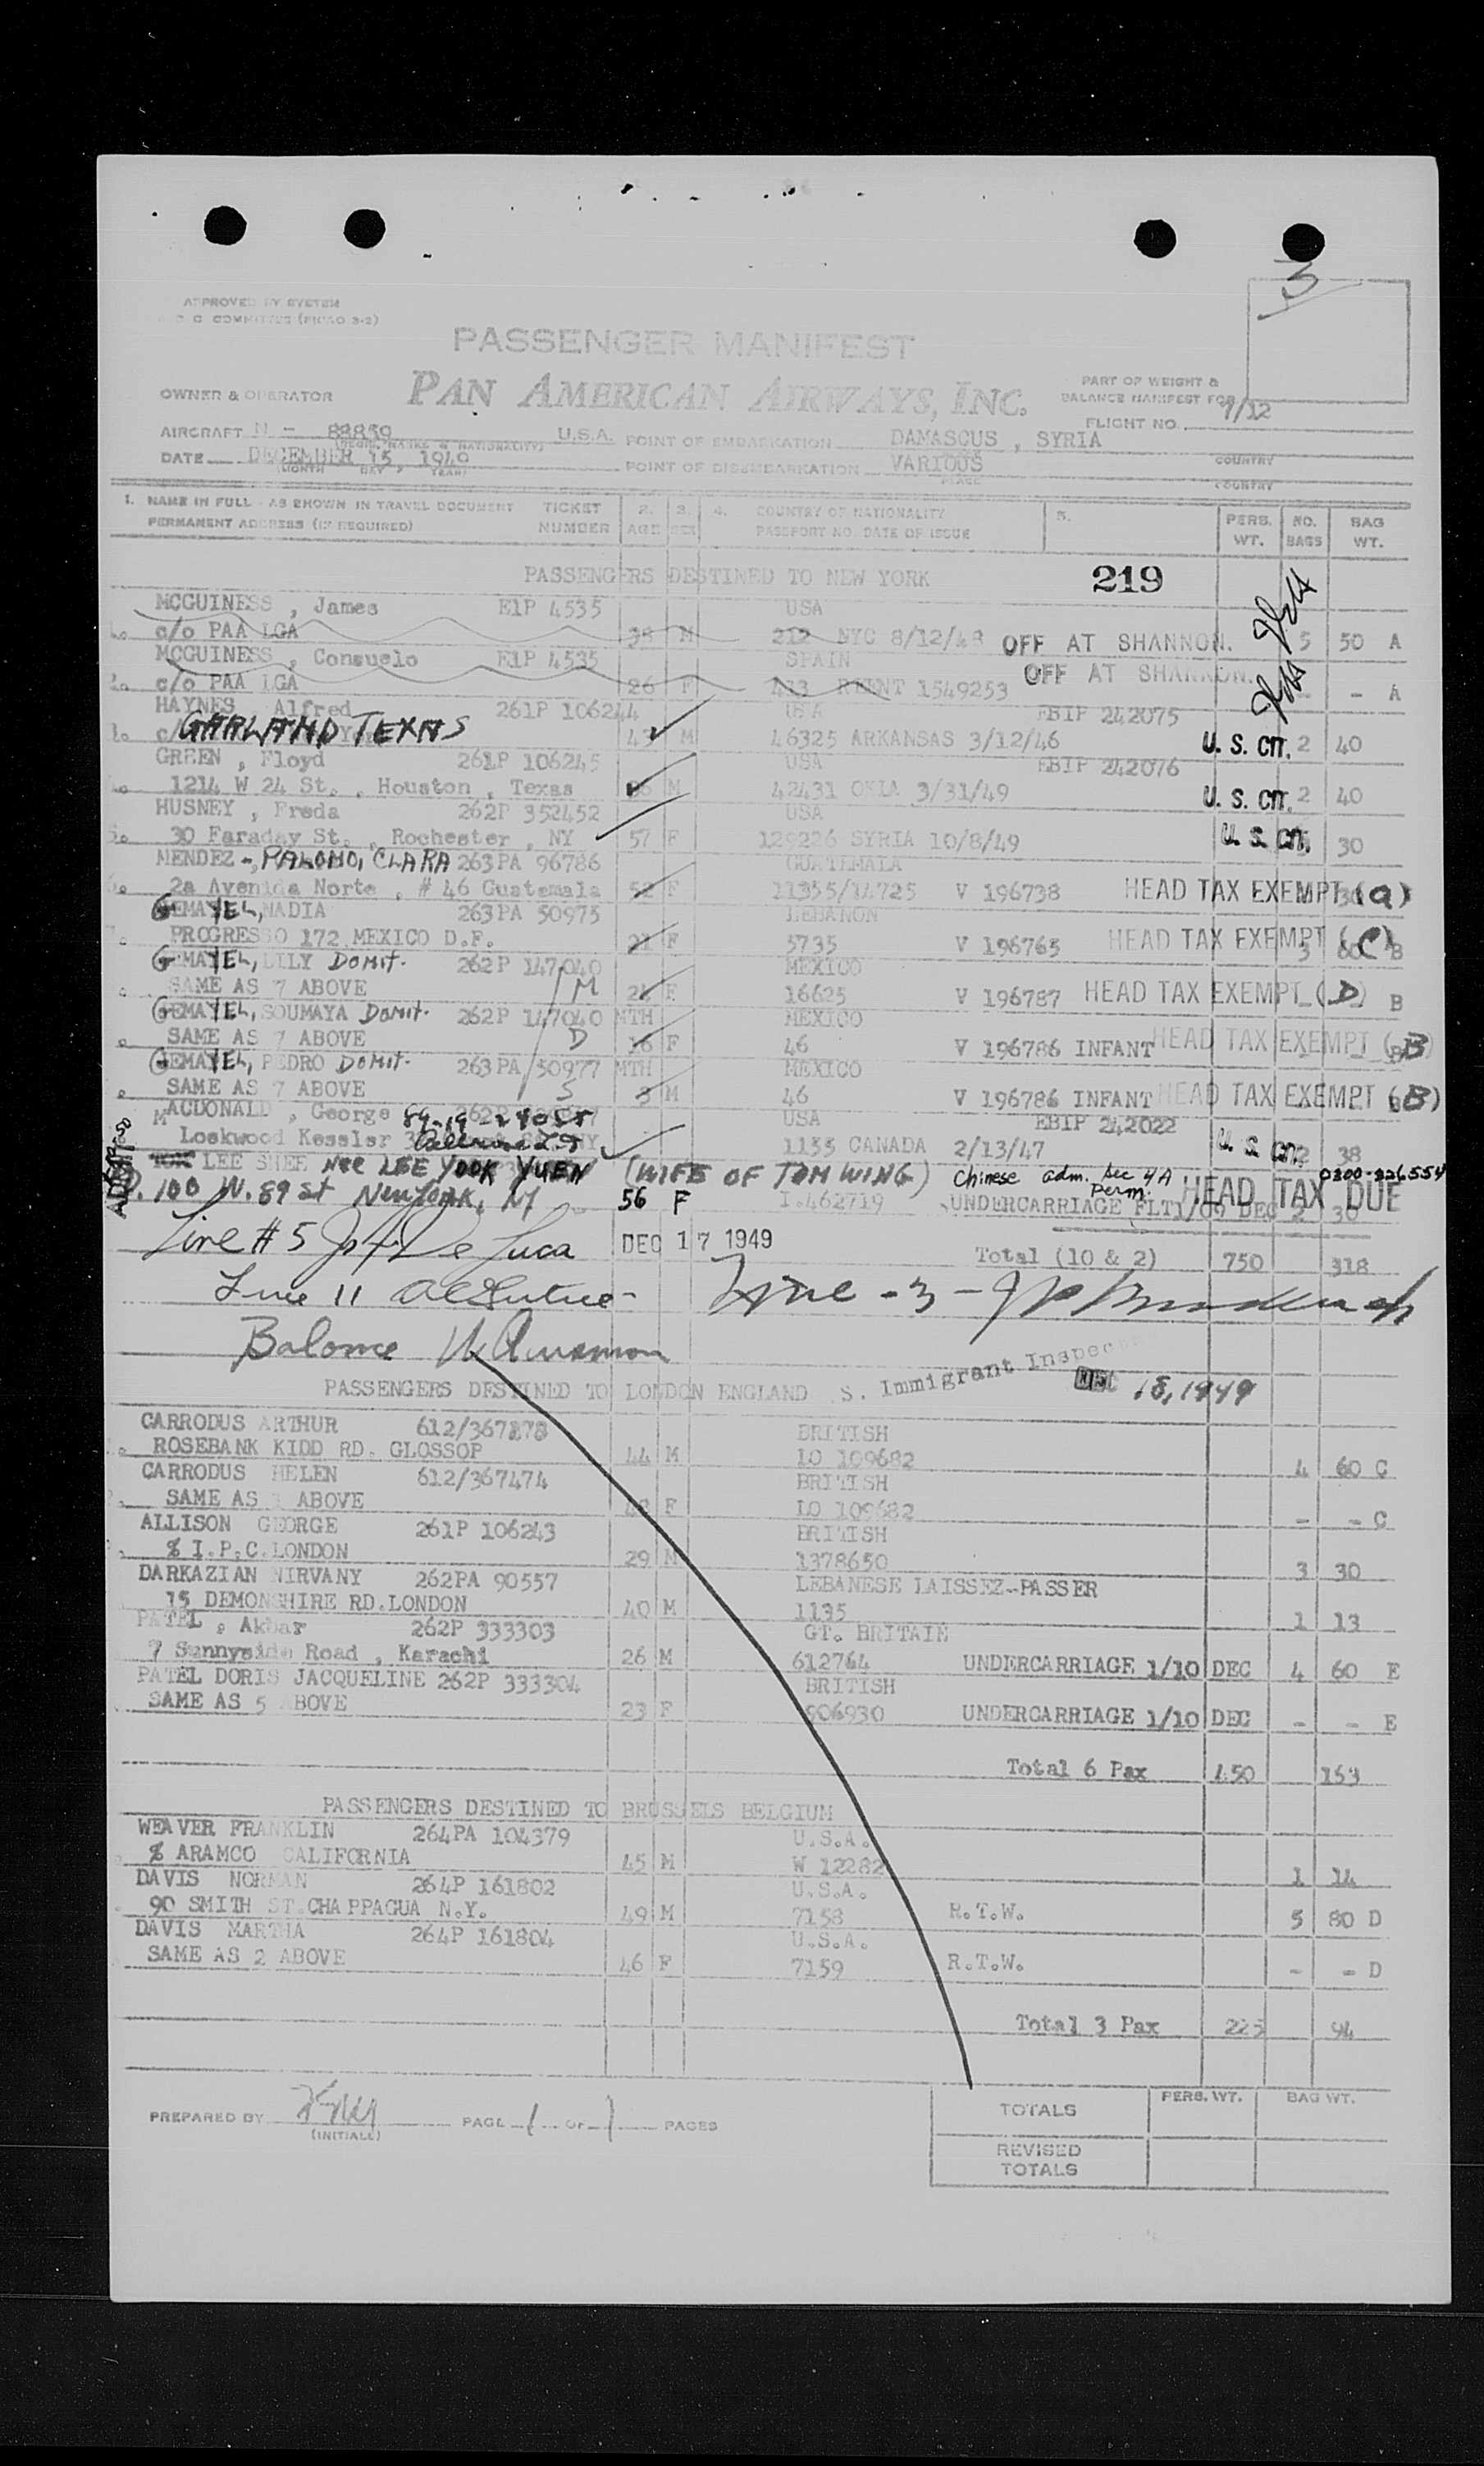 3
APPROVED BY SYSTEM
COMMITTEE (PICAO 3-2)
PASSENGER MANIFEST
OWNER & OPERATOR PAN AMERICAN AIRWAYS, INC.
PART OF WEIGHT & BALANCE MANIFEST FOR
FLIGHT NO. 1/12
AIRCRAFT N - 88859 U.S.A. POINT OF EMBARKATION DAMASCUS , SYRIA
DATE DECEMBER 15 , 1949 POINT OF DISEMBARKATION VARIOUS
MONTH DAY YEAR PLACE COUNTRY
COUNTRY
1. NAME IN FULL - AS SHOWN IN TRAVEL DOCUMENT TICKET 2. 3. 4. COUNTRY OF NATIONALITY 5. PERS. NO. BAG
PERMANENT ADDRESS (IF REQUIRED) NUMBER AGE SEX PASSPORT NO. DATE OF ISSUE WT. BAGS WT.
PASSENGERS DESTINED TO NEW YORK 219
MCGUINESS , James E1P 4535 USA
c/o PAA LGA 38 M 212 NYC 8/12/48 OFF AT SHANNON. 5 50 A
MCGUINESS , Consuelo E1P 4535 SPAIN
c/o PAA LGA 26 F 433 RTENT 1549253 OFF AT SHANNON. - - A
HAYNES Alfred 261P 106244 USA EBIP 242075
GARLAND TEXAS 45 M 46325 ARKANSAS 3/12/46 U. S. CIT. 2 40
GREEN , Floyd 261P 106245 USA EBIP 242076
1214 W 24 St. , Houston , Texas M 42431 OKLA 3/31/49 U. S. CIT. 2 40
HUSNEY , Freda 262P 352452 USA
30 Faraday St. , Rochester , NY 57 F 129226 SYRIA 10/8/49 U. S. CIT. 30
MENDEZ - PALOMO, CLARA 263PA 96786 GUATEMALA
2a Avenida Norte , # 46 Guatemala 52 F 11355/14725 V 196738 HEAD TAX EXEMPT (a)
GEMAYEL, NADIA 263PA 50975 LEBANON
PROGRESSO 172 MEXICO D.F. 21 F 5735 V 196765 HEAD TAX EXEMPT (C) B
GEMAYEL, LILY DOMIT. 262P 147040 MEXICO
SAME AS 7 ABOVE M F 16625 V 196787 HEAD TAX EXEMPT (D) B
GEMAYEL, SOUMAYA DOMIT. 262P 147040 MTH MEXICO
SAME AS 7 ABOVE D 16 F 46 V 196786 INFANT HEAD TAX EXEMPT (B)
GEMAYEL, PEDRO DOMIT. 263PA 50977 MTH MEXICO
SAME AS 7 ABOVE S 3 M 46 V 196786 INFANT HEAD TAX EXEMPT (B)
MACDONALD , George USA EBIP 242022
Lockwood Kessler 1155 CANADA 2/13/47 U. S. CIT. 38
LEE SHEE nee LEE YOOK YUEN (WIFE OF TOM WING) Chinese adm. Sec 4A perm. 0300-326554
100 W. 89 St New York, NY 56 F I.462719 UNDERCARRIAGE FLT1/09 DEC 2 30 HEAD TAX DUE
Line # 5 De Luca DEC 17 1949 Total (10 & 2) 750 318
Line 11 Line - 3 -
Balance
Immigrant Inspec
PASSENGERS DESTINED TO LONDON ENGLAND DEC 18, 1949
CARRODUS ARTHUR 612/367878 BRITISH
ROSEBANK KIDD RD. GLOSSOP 44 M LO 109682 4 60 C
CARRODUS HELEN 612/367474 BRITISH
SAME AS 1 ABOVE 42 F LO 109682 - - C
ALLISON GEORGE 261P 106243 BRITISH
% I.P.C. LONDON 29 M 1378650 3 30
DARKAZIAN NIRVANY 262PA 90557 LEBANESE LAISSEZ-PASSER
15 DEMONSHIRE RD. LONDON 40 M 1135 1 13
PATEL , Akbar 262P 333303 GT. BRITAIN
7 Sunnyside Road , Karachi 26 M 612764 UNDERCARRIAGE 1/10 DEC 4 60 E
PATEL DORIS JACQUELINE 262P 333304 BRITISH
SAME AS 5 ABOVE 23 F 906930 UNDERCARRIAGE 1/10 DEC - - E
Total 6 Pax 450 163
PASSENGERS DESTINED TO BRUSSELS BELGIUM
WEAVER FRANKLIN 264PA 104379 U.S.A.
% ARAMCO CALIFORNIA 45 M W 12282 1 14
DAVIS NORMAN 264P 161802 U.S.A.
90 SMITH ST. CHAPPAGUA N.Y. 49 M 7158 R.T.W. 5 80 D
DAVIS MARTHA 264P 161804 U.S.A.
SAME AS 2 ABOVE 46 F 7159 R.T.W. - - D
Total 3 Pax 225 94
PREPARED BY PAGE 1 OF 1 PAGES
(INITIALS)
TOTALS PERS. WT. BAG WT.
REVISED TOTALS